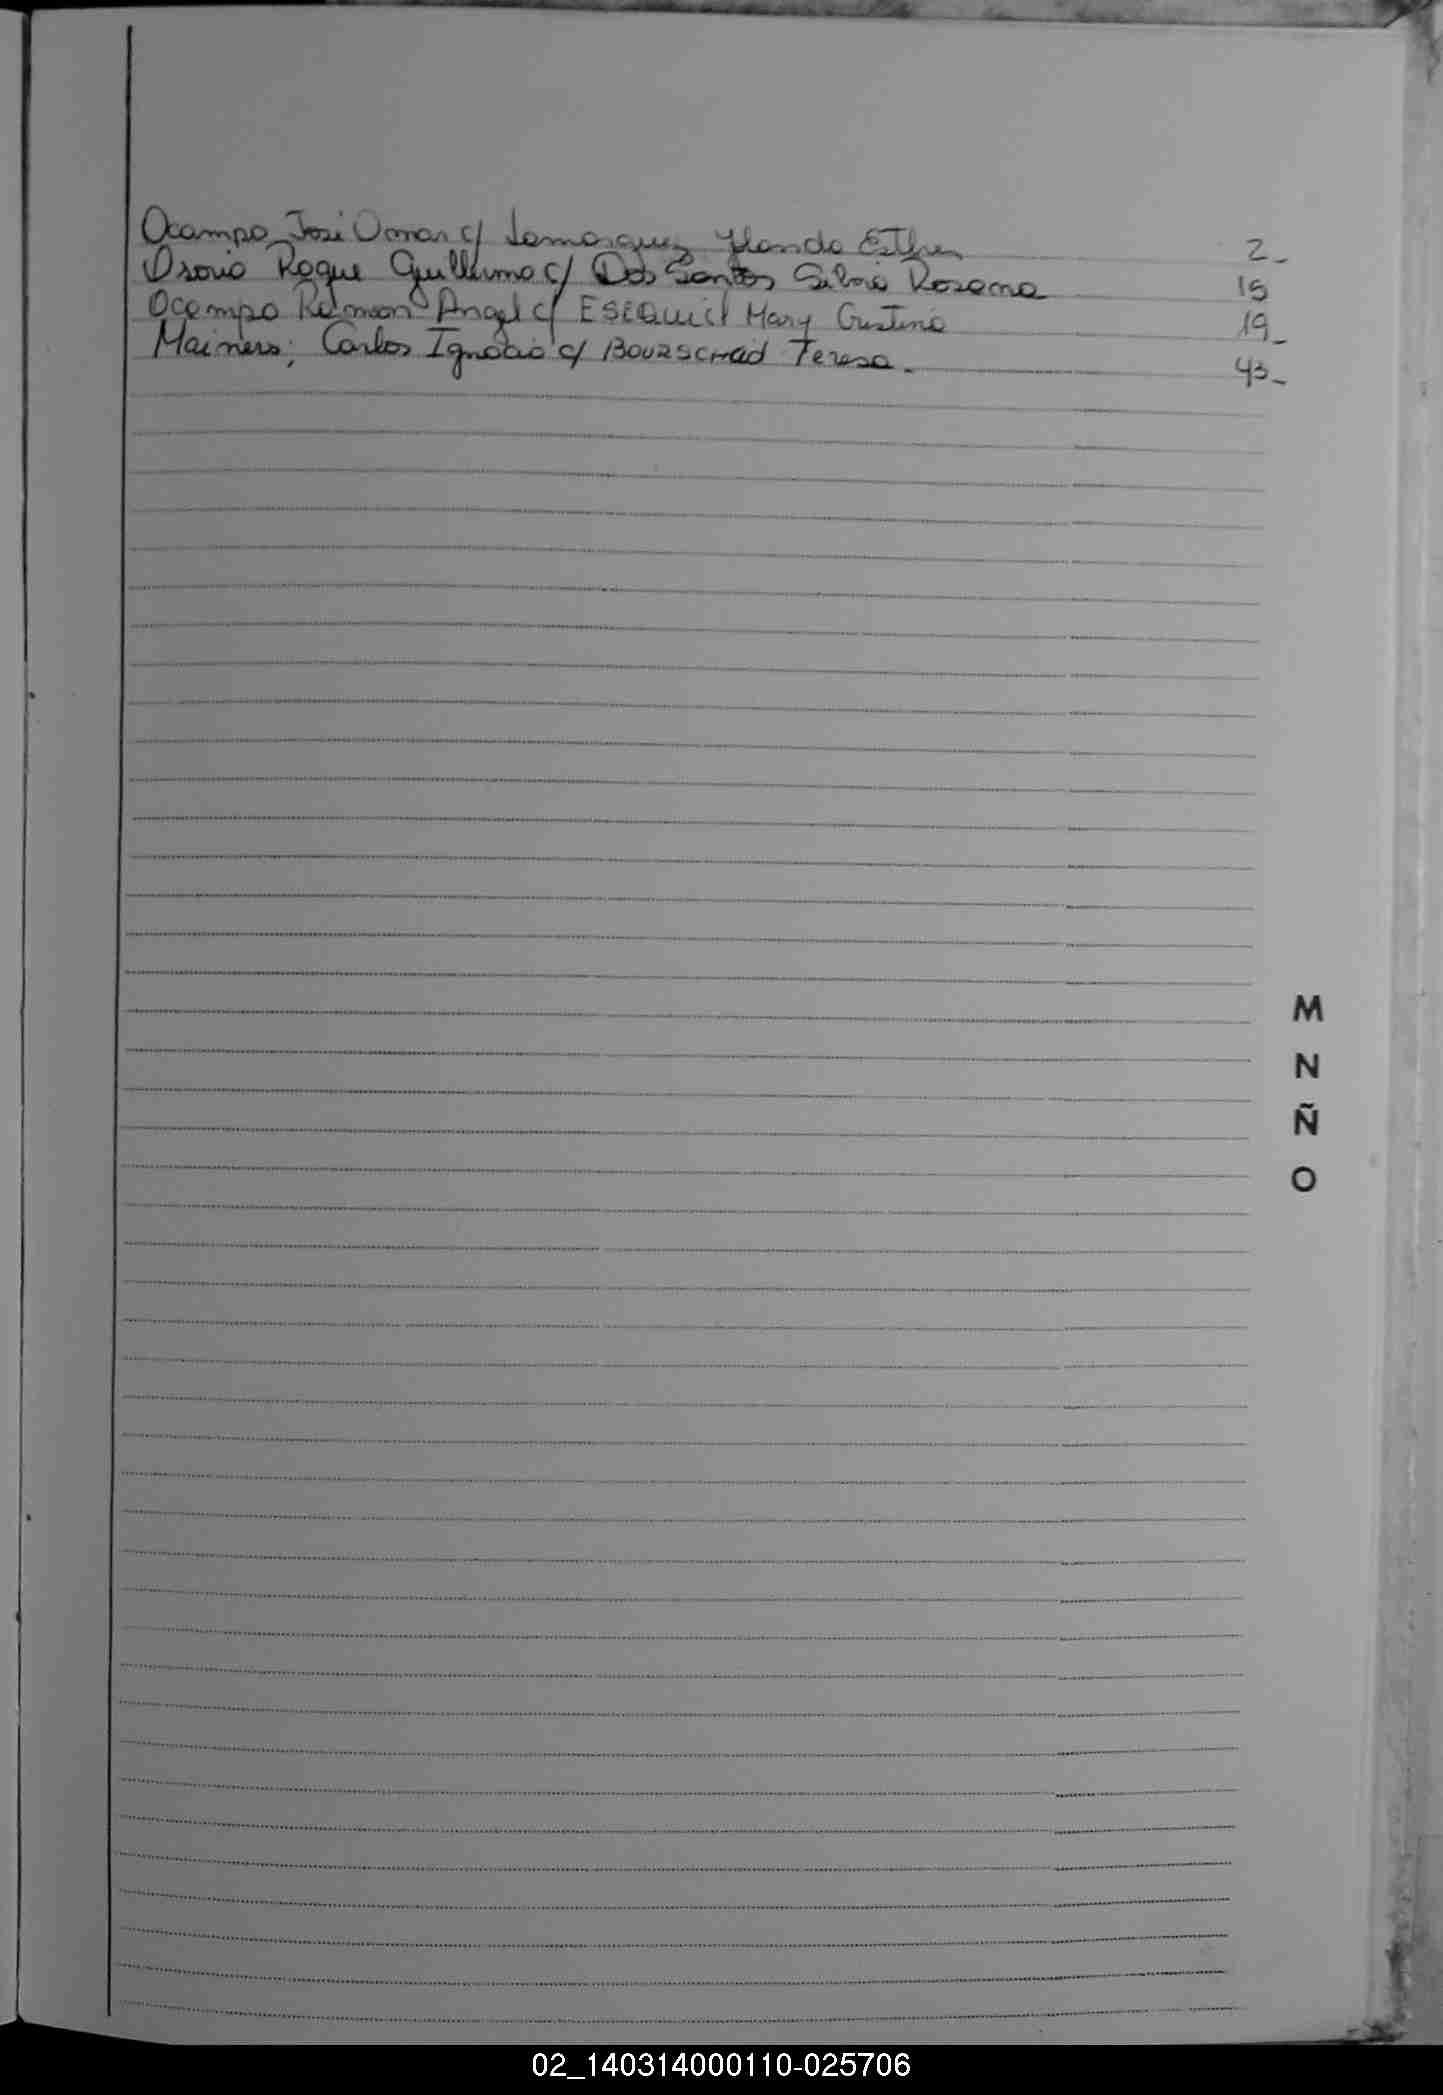 Ocampo José Omar c/ Lamarquez Ylanda Esther 2_
Osorio Roque Guillermo c/ Dos Santos Silvia Rosana 15
Ocampo Ramon Angel c/ ESEQuiel Mary Cristina 19_
Mainero, Carlos Ignacio c/ Bourscheid Teresa. 43_
M
N
Ñ
O
02_140314000110-025706